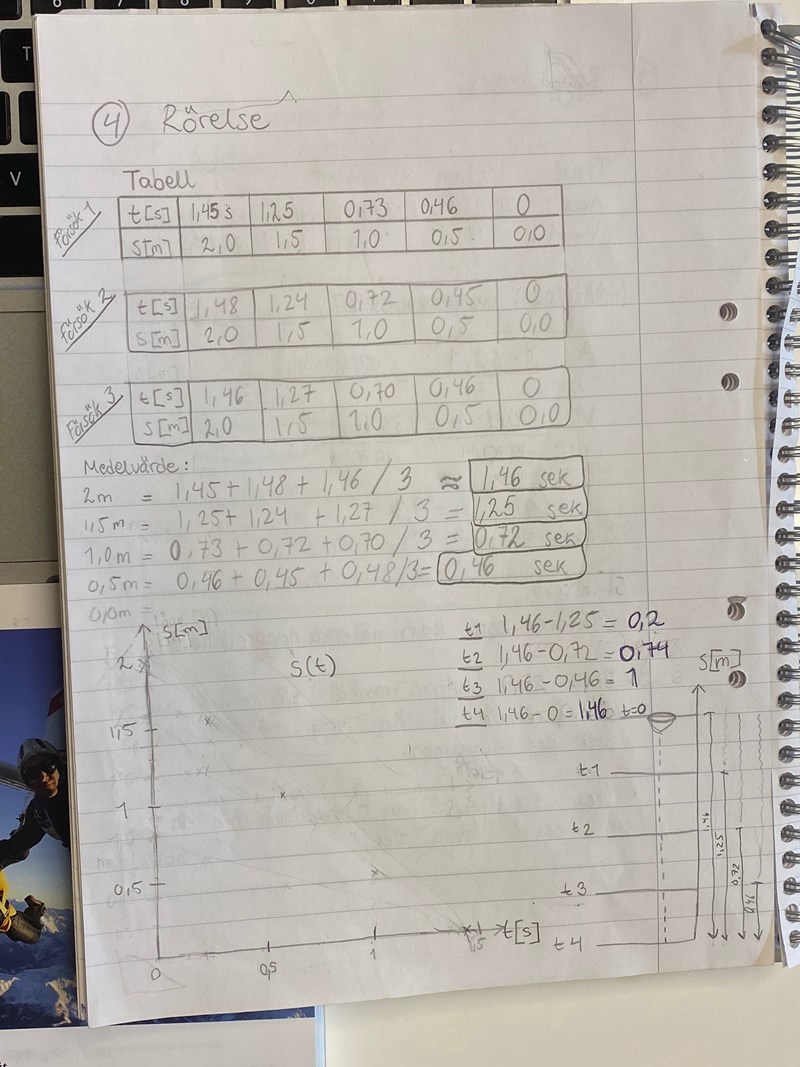 4 Rörelse
Tabell
Försök 1
t[s] 1,45 s 1,25 0,73 0,46 0
S[m] 2,0 1,5 1,0 0,5 0,0
Försök 2
t[s] 1,48 1,24 0,72 0,45 0
s[m] 2,0 1,5 1,0 0,5 0,0
Försök 3
t[s] 1,46 1,27 0,70 0,46 0
s[m] 2,0 1,5 1,0 0,5 0,0
Medelvärde:
2m = 1,45+1,48+1,46/3 ≈ 1,46 sek
1,5m = 1,25+1,24+1,27/3 = 1,25 sek
1,0m = 0,73+0,72+0,70/3 = 0,72 sek
0,5m = 0,46+0,45+0,48/3= 0,46 sek
0,0m =
t1 1,46-1,25 = 0,2
t2 1,46-0,72 = 0,74
t3 1,46-0,46 = 1
t4 1,46-0 = 1,46 t=0
S[m]
S(t)
2
1,5
1
0,5
0 0,5 1 1,5 t[s]
S[m]
t1
t2
t3
t4
1,25
0,72
0,46
T
V